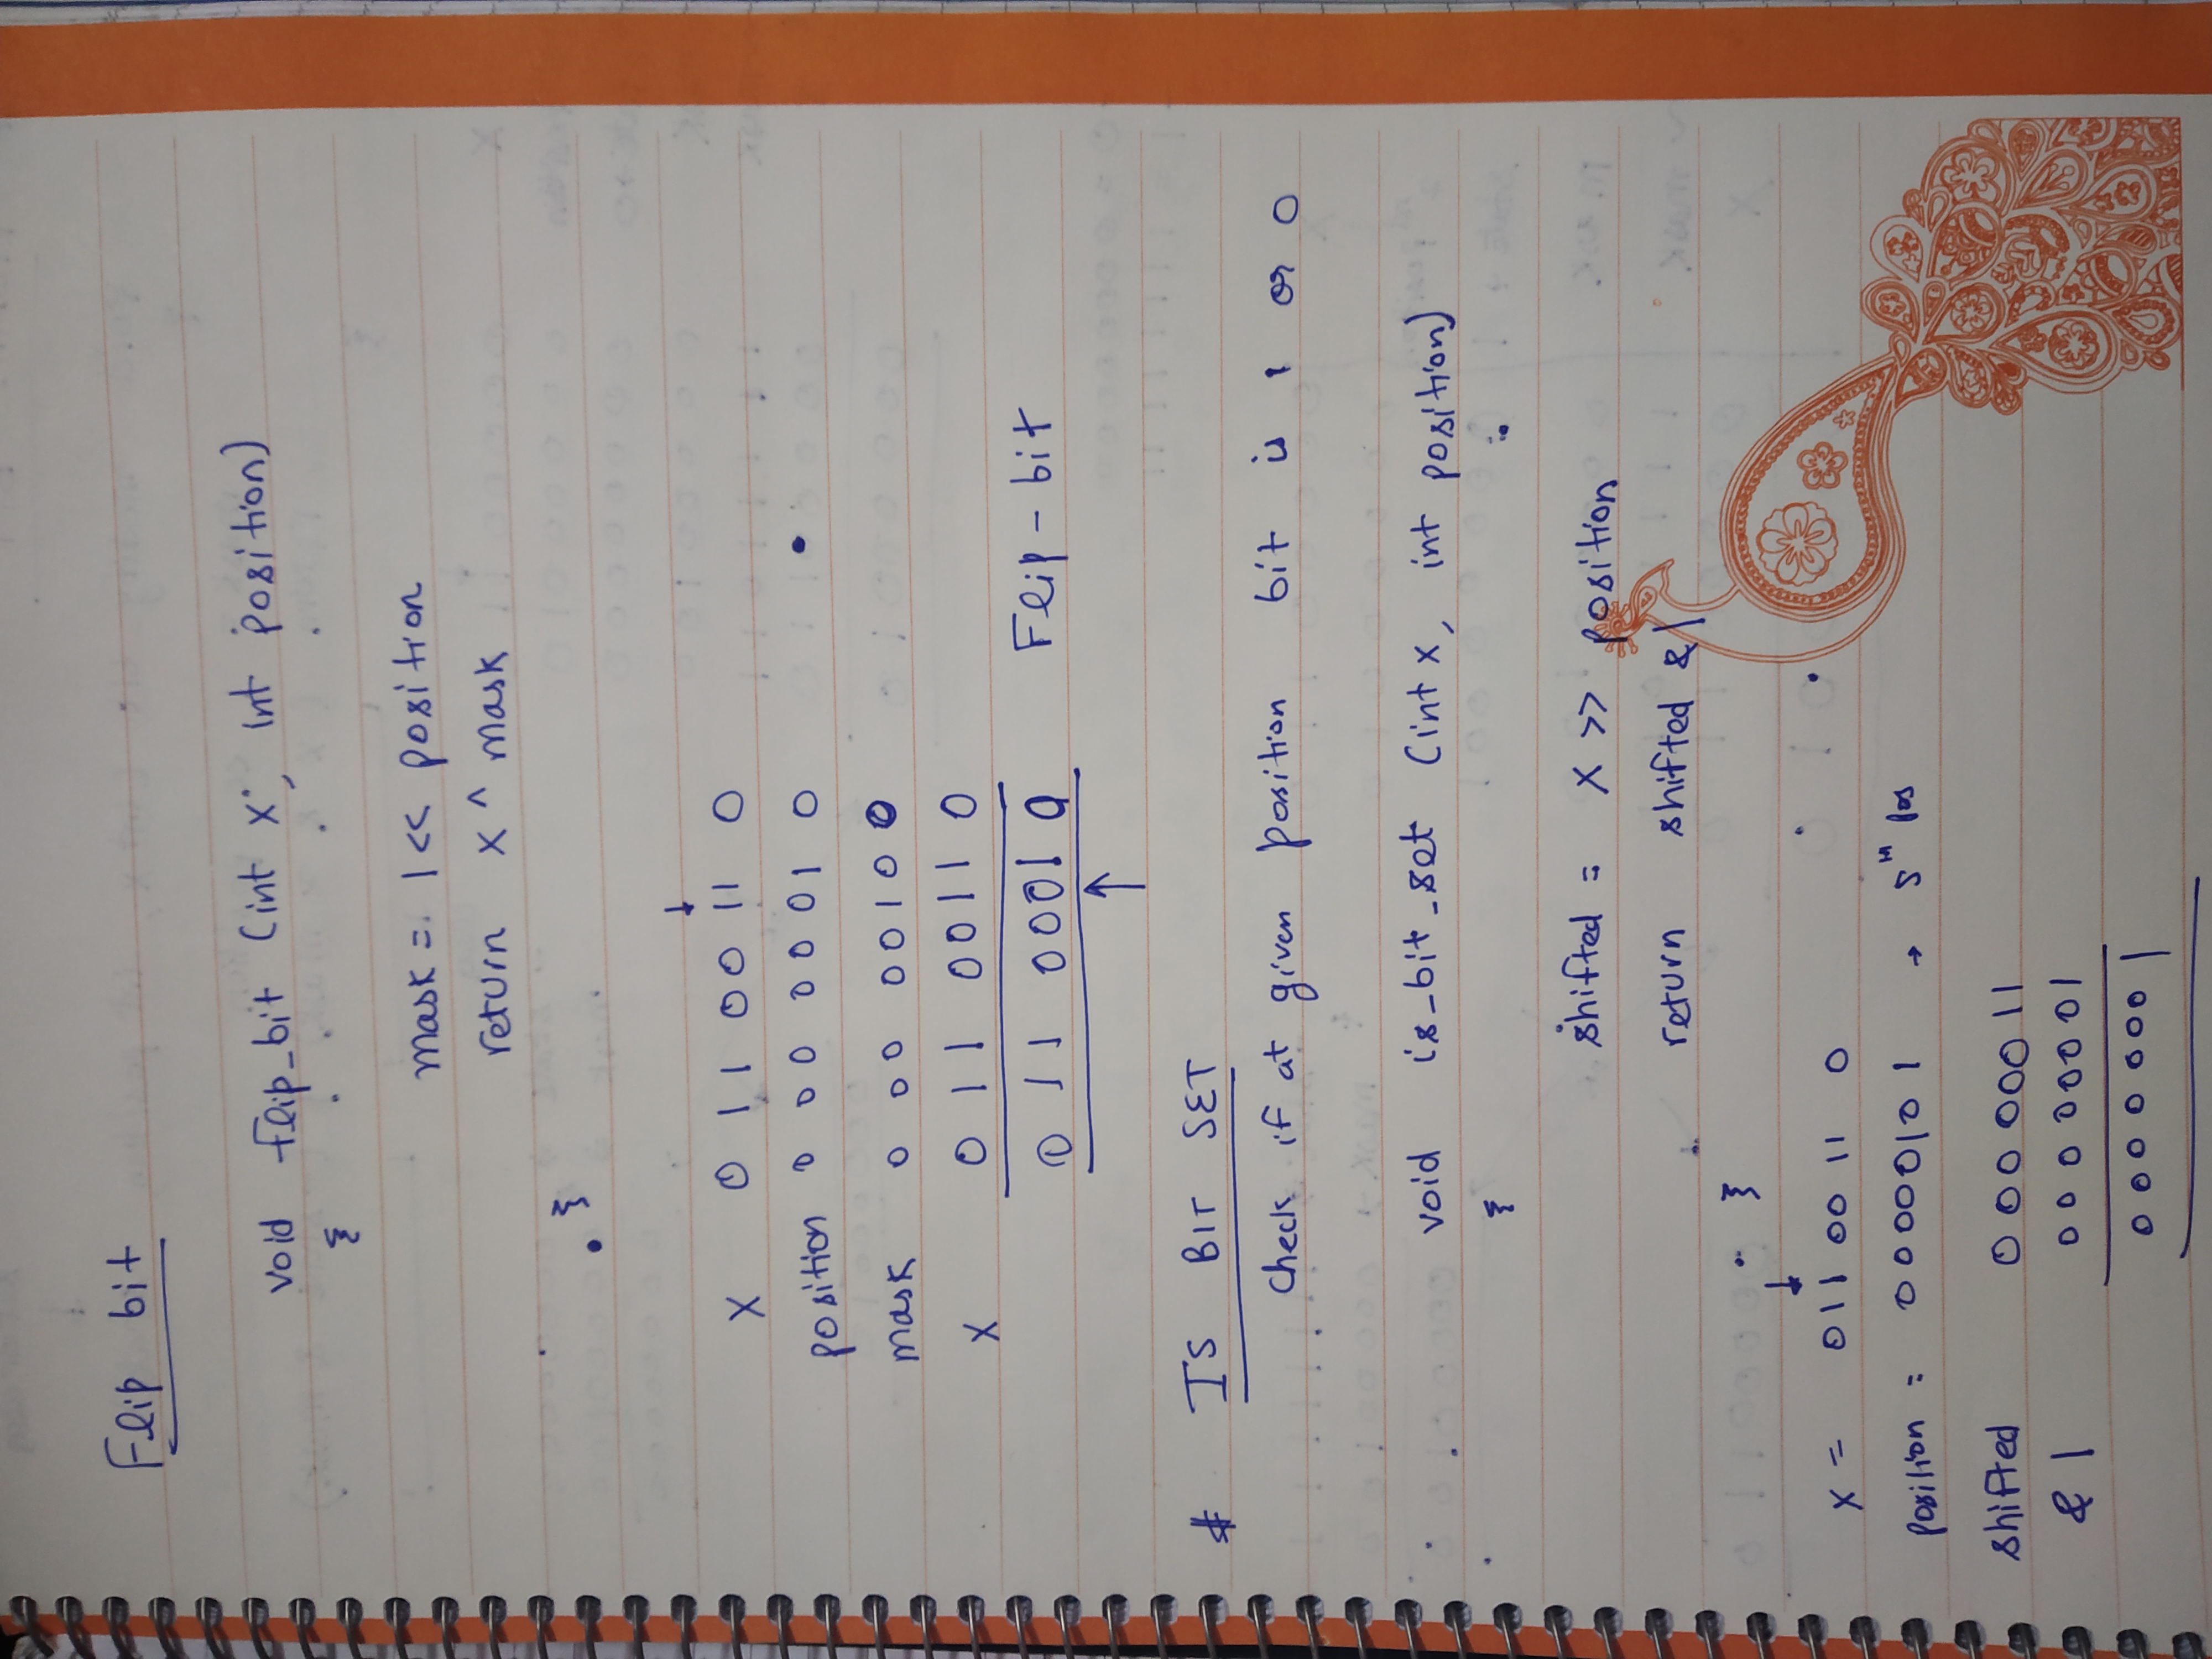 Flip bit
void flip_bit (int x, int position)
{
mask = 1 << position
return x ^ mask
}
x 0 1 1 0 0 1 1 0
position 0 0 0 0 0 0 1 0
mask 0 0 0 0 0 1 0 0
x 0 1 1 0 0 1 1 0
0 1 1 0 0 0 1 0 Flip - bit
# IS BIT SET
Check if at given position bit is 1 or 0
void is_bit_set (int x, int position)
{
shifted = x >> position
return shifted & 1
}
x = 0 1 1 0 0 1 1 0
position = 0 0 0 0 0 1 0 1 → 5th
shifted 0 0 0 0 0 0 1 1
& 1 0 0 0 0 0 0 0 1
0 0 0 0 0 0 0 1